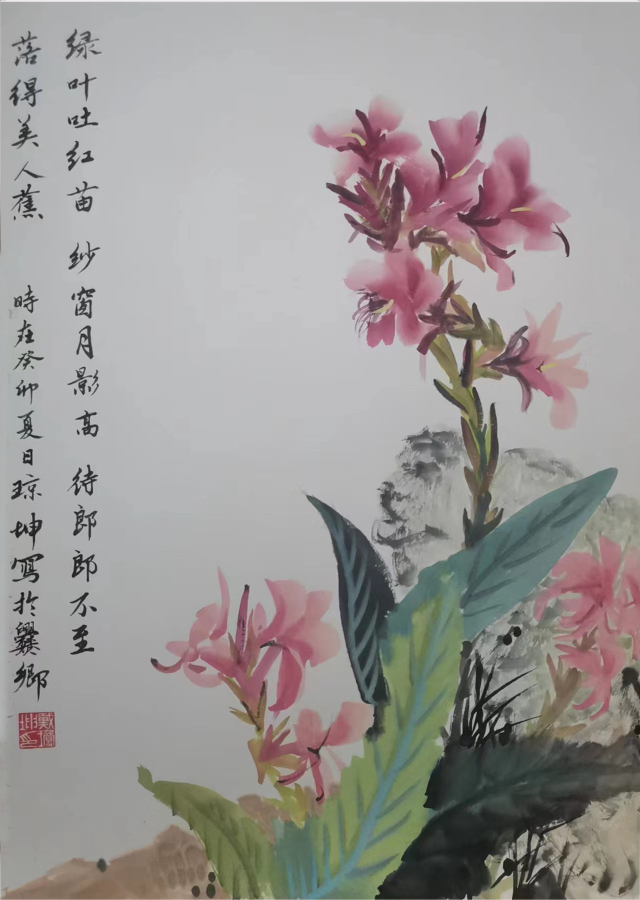 绿叶吐红苗 纱窗月影高 待郎郎不至
落得美人蕉 時在癸卯夏日琼坤寫於爨鄉